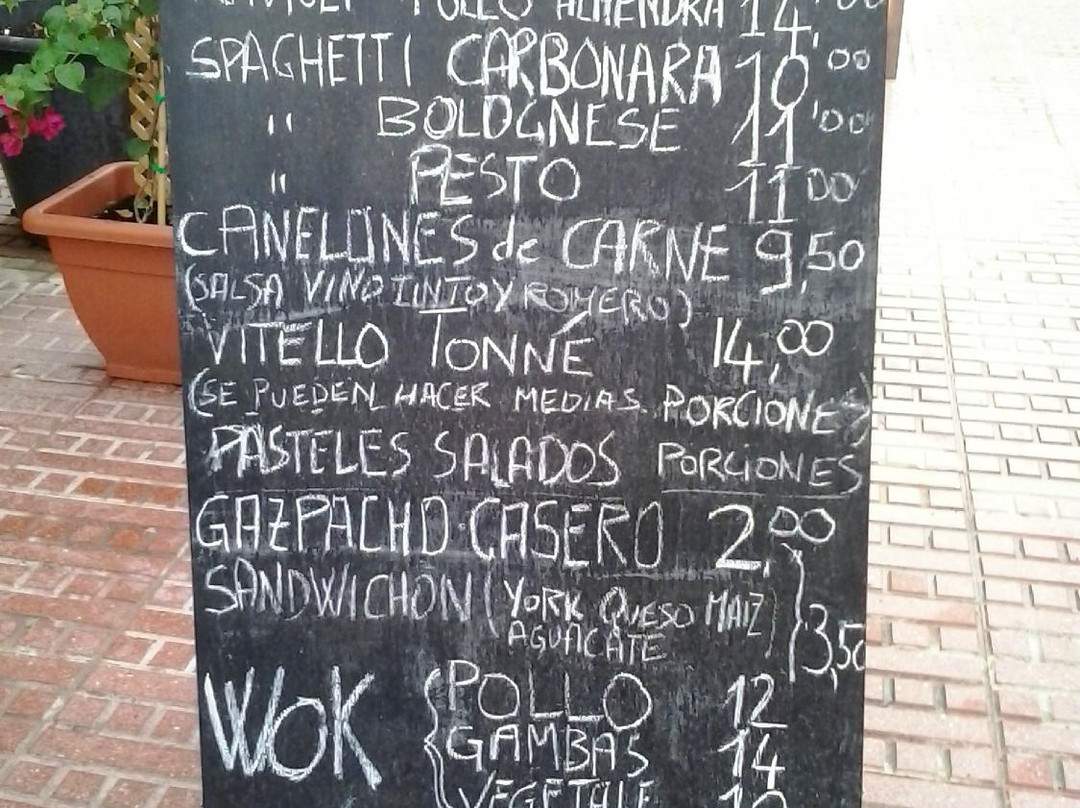 POLLO ALMENDRA 14,00
SPAGHETTI CARBONARA 10,00
" BOLOGNESE 11,00
" PESTO 11,00
CANELONES de CARNE 9,50
(SALSA VINO TINTO Y ROMERO)
VITELLO TONNÉ 14,00
(SE PUEDEN HACER MEDIAS PORCIONES)
PASTELES SALADOS PORCIONES
GAZPACHO CASERO 2,00
SANDWICHON (YORK QUESO MAIZ)
AGUACATE
3,50
WOK { POLLO 12
GAMBAS 14
VEGETALE